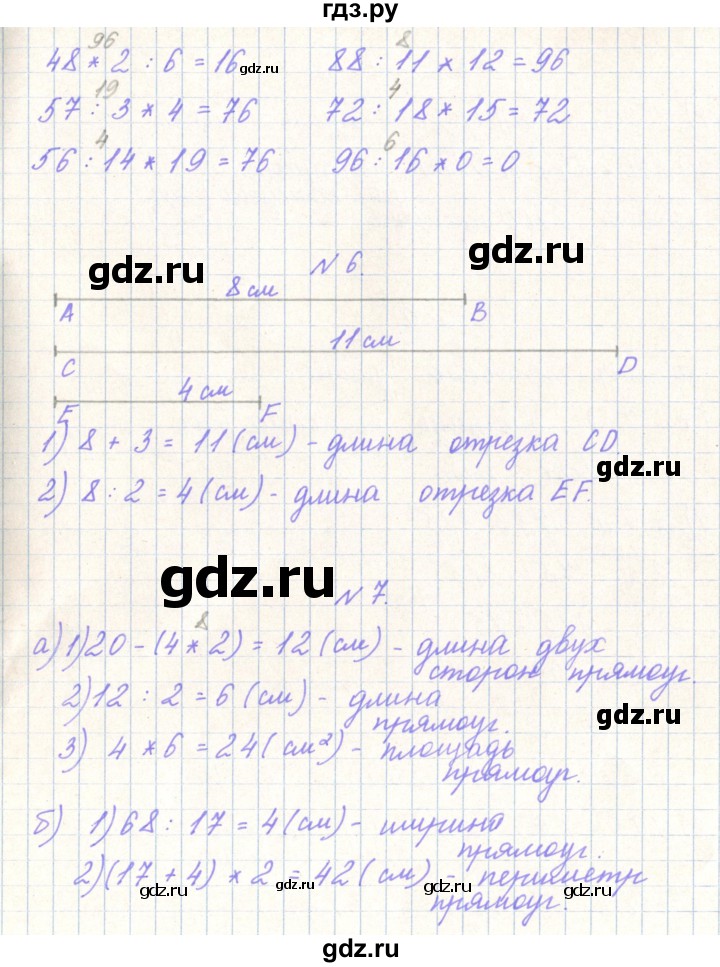 гдз.ру
96 8
48 * 2 : 6 = 16 88 : 11 * 12 = 96
gdz.ru
19 4
57 : 3 * 4 = 76 72 : 18 * 15 = 72
4 6
56 : 14 * 19 = 76 96 : 16 * 0 = 0
gdz.ru gdz.ru
N 6.
8 см
A B
11 см
C D
4 см
E F
1) 8 + 3 = 11 (см) - длина отрезка CD.
gdz.ru
2) 8 : 2 = 4 (см) - длина отрезка EF.
gdz.ru
N 7.
8
а) 1) 20 - (4 * 2) = 12 (см) - длина двух
сторон прямоуг.
2) 12 : 2 = 6 (см) - длина
прямоуг.
gdz.ru
3) 4 * 6 = 24 (см²) - площадь
прямоуг.
б) 1) 68 : 17 = 4 (см) - ширина
прямоуг.
2) (17 + 4) * 2 = 42 (см) - периметр
прямоуг.
gdz.ru gdz.ru gdz.ru gdz.ru
gdz.ru